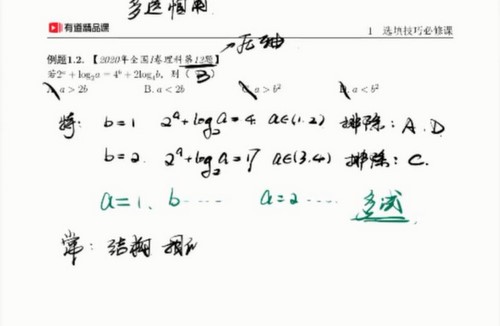 多选慎用
有道精品课
1 选填技巧必修课
压轴
例题1.2.【2020年全国I卷理科第12题】
若2ᵃ+log₂a=4ᵇ+2log₄b,则( B )
A. a>2b B. a<2b C. a>b² D. a<b²
特: b=1 2ᵃ+log₂a=4. a∈(1.2) 排除: A. D.
b=2. 2ᵃ+log₂a=17 a∈(3.4) 排除: C.
a=1、 b····· a=2····· 多试
常: 结构